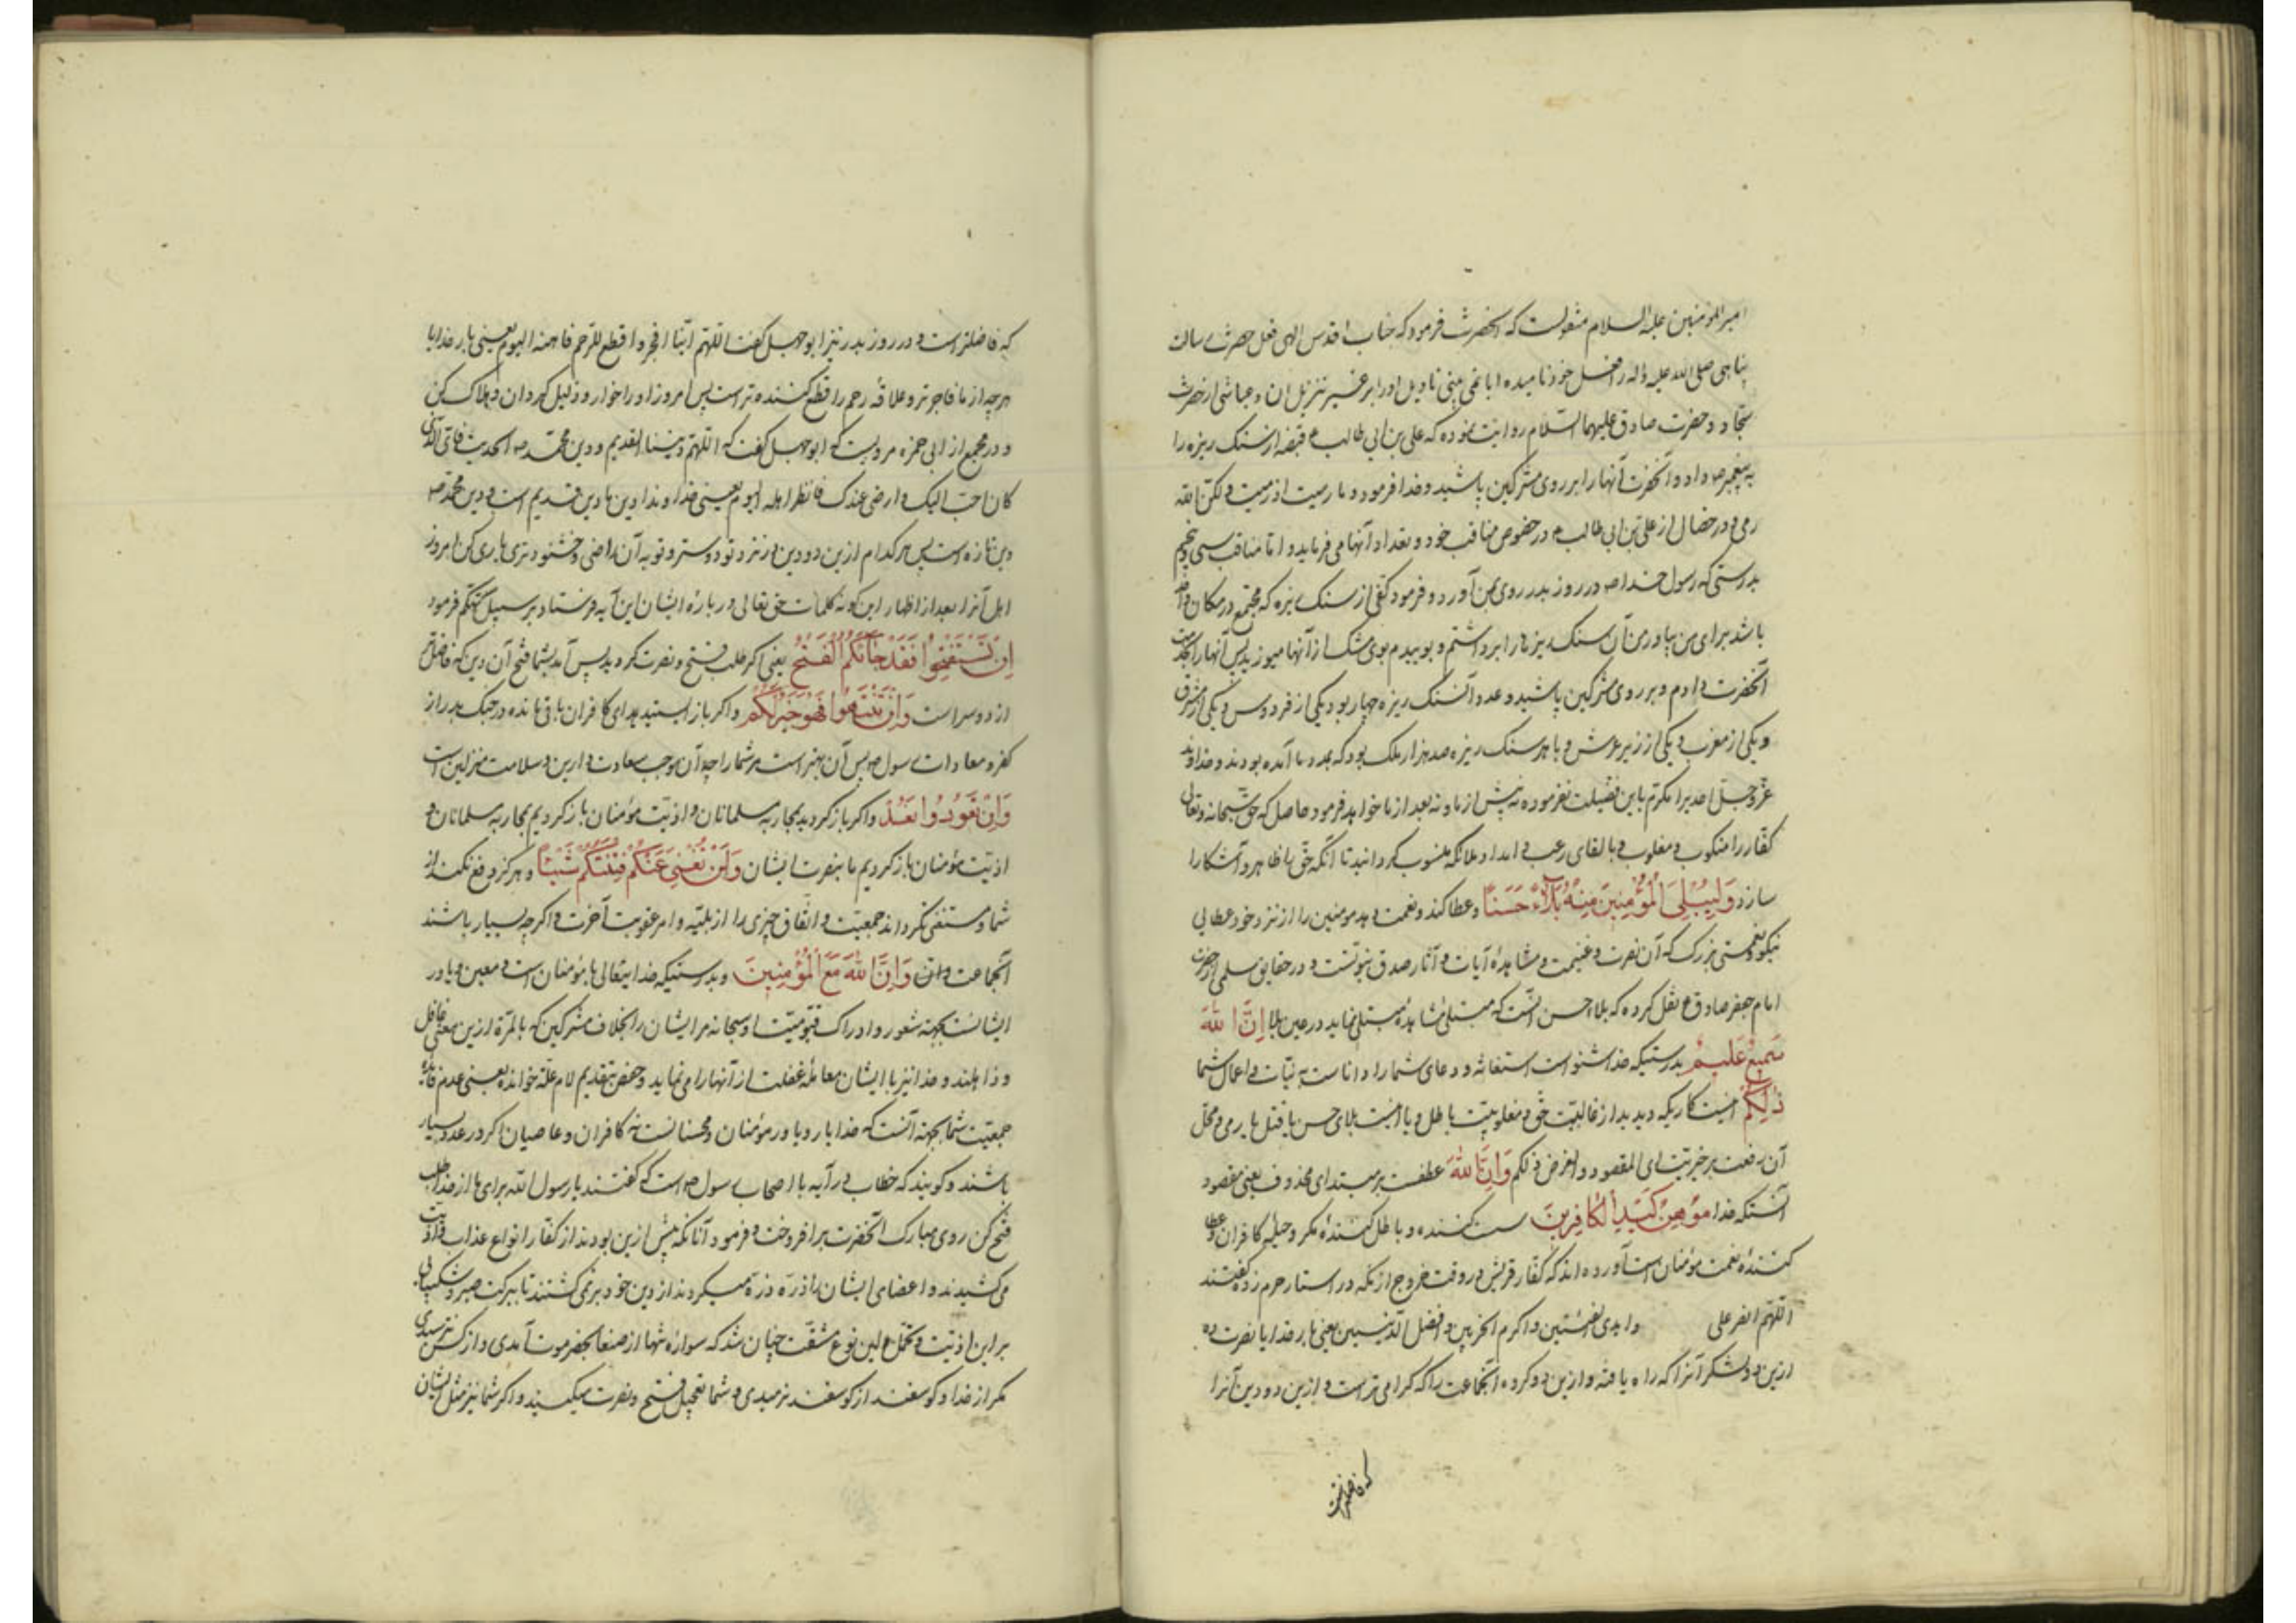 امیرالمؤمنین علیه السلام منقولست که آنحضرت فرمود که جناب اقدس الهی فعل حضرت رسالت
پناهی صلی الله علیه وآله را فعل خود نامیده ایا نمی بینی تاویل او را بر غیر تنزیل ان و عیاشی از حضرت
سجاد و حضرت صادق علیهما السلام روایت نموده که علی بن ابی طالب ع قبضه از سنک ریزه را
به پیغمبر ص داد و آنحضرت آنها را بر روی مشرکین پاشید و خدا فرمود و ما رمیت اذ رمیت و لکن الله
رمی و در خصال از علی بن ابی طالب ع در خصوص مناقب خود و تعداد آنها می فرماید و اما مناقب سی و پنجم
بدرستی که رسول خدا ص در روز بدر روی بمن آورد و فرمود کفی از سنک ریزه که مجتمع در مکان واحد
باشد برای من بیاور من آن سنک ریزها را برداشتم و بوییدم بوی مشک از آنها میوزید پس آنها را بخدمت
آنحضرت دادم و بر روی مشرکین پاشید و عدد آن سنک ریزه چهار بود یکی از فردوس و یکی از مشرق
و یکی از مغرب و یکی از زیر عرش و با هر سنک ریزه صد هزار ملک بود که بمدد ما آمده بودند و خداوند
عز و جل احدیرا مکرم باین فضیلت نفرموده نه پیش از ما و نه بعد از ما خواهد فرمود حاصل که حق سبحانه وتعالی
کفار را منکوب و مغلوب و بالقای رعب و امداد ملائکه منسوب کردانید تا آنکه حق را ظاهر و آشکارا
سازد وَلِیُبْلِیَ الْمُؤْمِنِینَ مِنْهُ بَلَاءً حَسَنًا و عطا کند و نعمت دهد مومنین را از نزد خود عطایی
نیکو و نعمتی بزرک که آن نصرت و غنیمت و مشاهدهٔ آیات و آثار صدق نبوتست و در حقایق سلمی از حضرت
امام جعفر صادق ع نقل کرده که بلاء حسن آنست که مبتلی مشاهدهٔ مبتلی نماید در عین بلا اِنَّ اللهَ
سَمِیعٌ عَلِیمٌ بدرستیکه خدا شنواست استغاثه و دعای شما را داناست به نیات و اعمال شما
ذٰلِکُمْ اینست کاریکه دیدید از غالبیت حق و مغلوبیت باطل و یا اینست بلای حسن یا قتل یا رمی و محل
آن رفعت بر خبریت ای المقصود و الغرض ذلکم وَاَنَّ اللهَ عطفست بر مبتدای محذوف یعنی مقصود
آنستکه خدا مُوهِنُ کَیْدِ الْکَافِرِینَ سست کننده و باطل کنندهٔ مکر و حیلهٔ کافران و عطا
کنندهٔ نعمت مؤمنان است آورده اند که کفار قریش در وقت خروج از مکه در استار حرم زده گفتند
اللهم انصر علی وا بدی الفئتین واکرم الحزبین وافضل الدینین یعنی بار خدایا نصرت ده
ازین دو لشکر آنرا که راه یافته و ازین دو کروه آنجماعت را که کرامی تر است و ازین دو دین آنرا
که فاضلتراست
که فاضلتر است و در روز بدر نیز ابوجهل کفت اللهم اینا افجر و اقطع للرحم فاهنه الیوم یعنی بار خدایا
هر چه از ما فاجرتر و علاقهٔ رحم را قطع کننده تر است پس امروز او را خوار و ذلیل کردان و هلاک کن
و در مجمع از ابی حمزه مرویست که ابوجهل کفت که اللهم دیننا القدیم و دین محمد ص الحدیث فای الدین
کان احب الیک و ارضی عندک فانظر اهله الیوم یعنی خداوندا دین ما دین قدیم است و دین محمد ص
دین تازه است پس هر کدام ازین دو دین در نزد تو دوستر و تو به آن راضی و خشنودتری یاری کن امروز
اهل آنرا بعد از اظهار این کونه کلمات حق تعالی در بارهٔ ایشان این آیه فرستاد بر سبیل تهکم فرمود
اِنْ تَسْتَفْتِحُوا فَقَدْ جَاءَکُمُ الْفَتْحُ یعنی اکر طلب فتح و نصرت کردید پس آمد بشما فتح آن دین که فاضلتر
از دوسراست وَاِنْ تَنْتَهُوا فَهُوَ خَیْرٌ لَکُمْ و اکر باز ایستید ای کافران باقی مانده در جنک بدر از
کفر و معادات رسول ص پس آن بهتر است مر شما را چه آن موجب سعادت دارین و سلامت منزلین است
وَاِنْ تَعُودُوا نَعُدْ و اکر باز کردید بمحاربه مسلمانان و اذیت مؤمنان باز کردیم بمحاربه مسلمانان و
اذیت مؤمنان باز کردیم ما بنصرت ایشان وَلَنْ تُغْنِیَ عَنْکُمْ فِئَتُکُمْ شَیْئًا و هرکز دفع نکند از
شما و مستغنی نکرداند جمعیت و اتفاق چیزی را از بلیه و امر عقوبت آخرت و اکر چه بسیار باشند
آنجماعت وَاَنَّ اللهَ مَعَ الْمُؤْمِنِینَ و بدرستیکه خدایتعالی با مؤمنان است و معین و یاور
ایشانست بجهة شعور و ادراک قیومیت او سبحانه مر ایشان را بخلاف مشرکین که بالمرة ازین معنی غافل
و ذاهلند و خدا نیز با ایشان معاملهٔ غفلت از آنها را می نماید و حفص بتقدیم لام علة خوانده یعنی عدم فایدهٔ
جمعیت شما بجهة آنست که خدا یار و یاور مؤمنان و محسنانست نه کافران و عاصیان اکر در عدد بسیار
باشند و کویند که خطاب در آیه با اصحاب رسول ص است که کفتند یا رسول الله برای ما از خدا طلب
فتح کن روی مبارک آنحضرت برافروخت و فرمود آنانکه پیش ازین بودند از کفار انواع عذاب و اذیت
می کشیدند و اعضای ایشان را ذره ذره میکردند از دین خود برنمی کشتند تا ببرکت صبر و شکیبایی
بر این اذیت و تحمل این نوع مشقت چنان شد که سواره تنها از صنعا بحضرموت آمدی و از کس نترسیدی
مکر از خدا و کوسفند از کوسفند نرمیدی و شما تعجیل فتح و نصرت میکنید و اکر شما نیز مثل ایشان